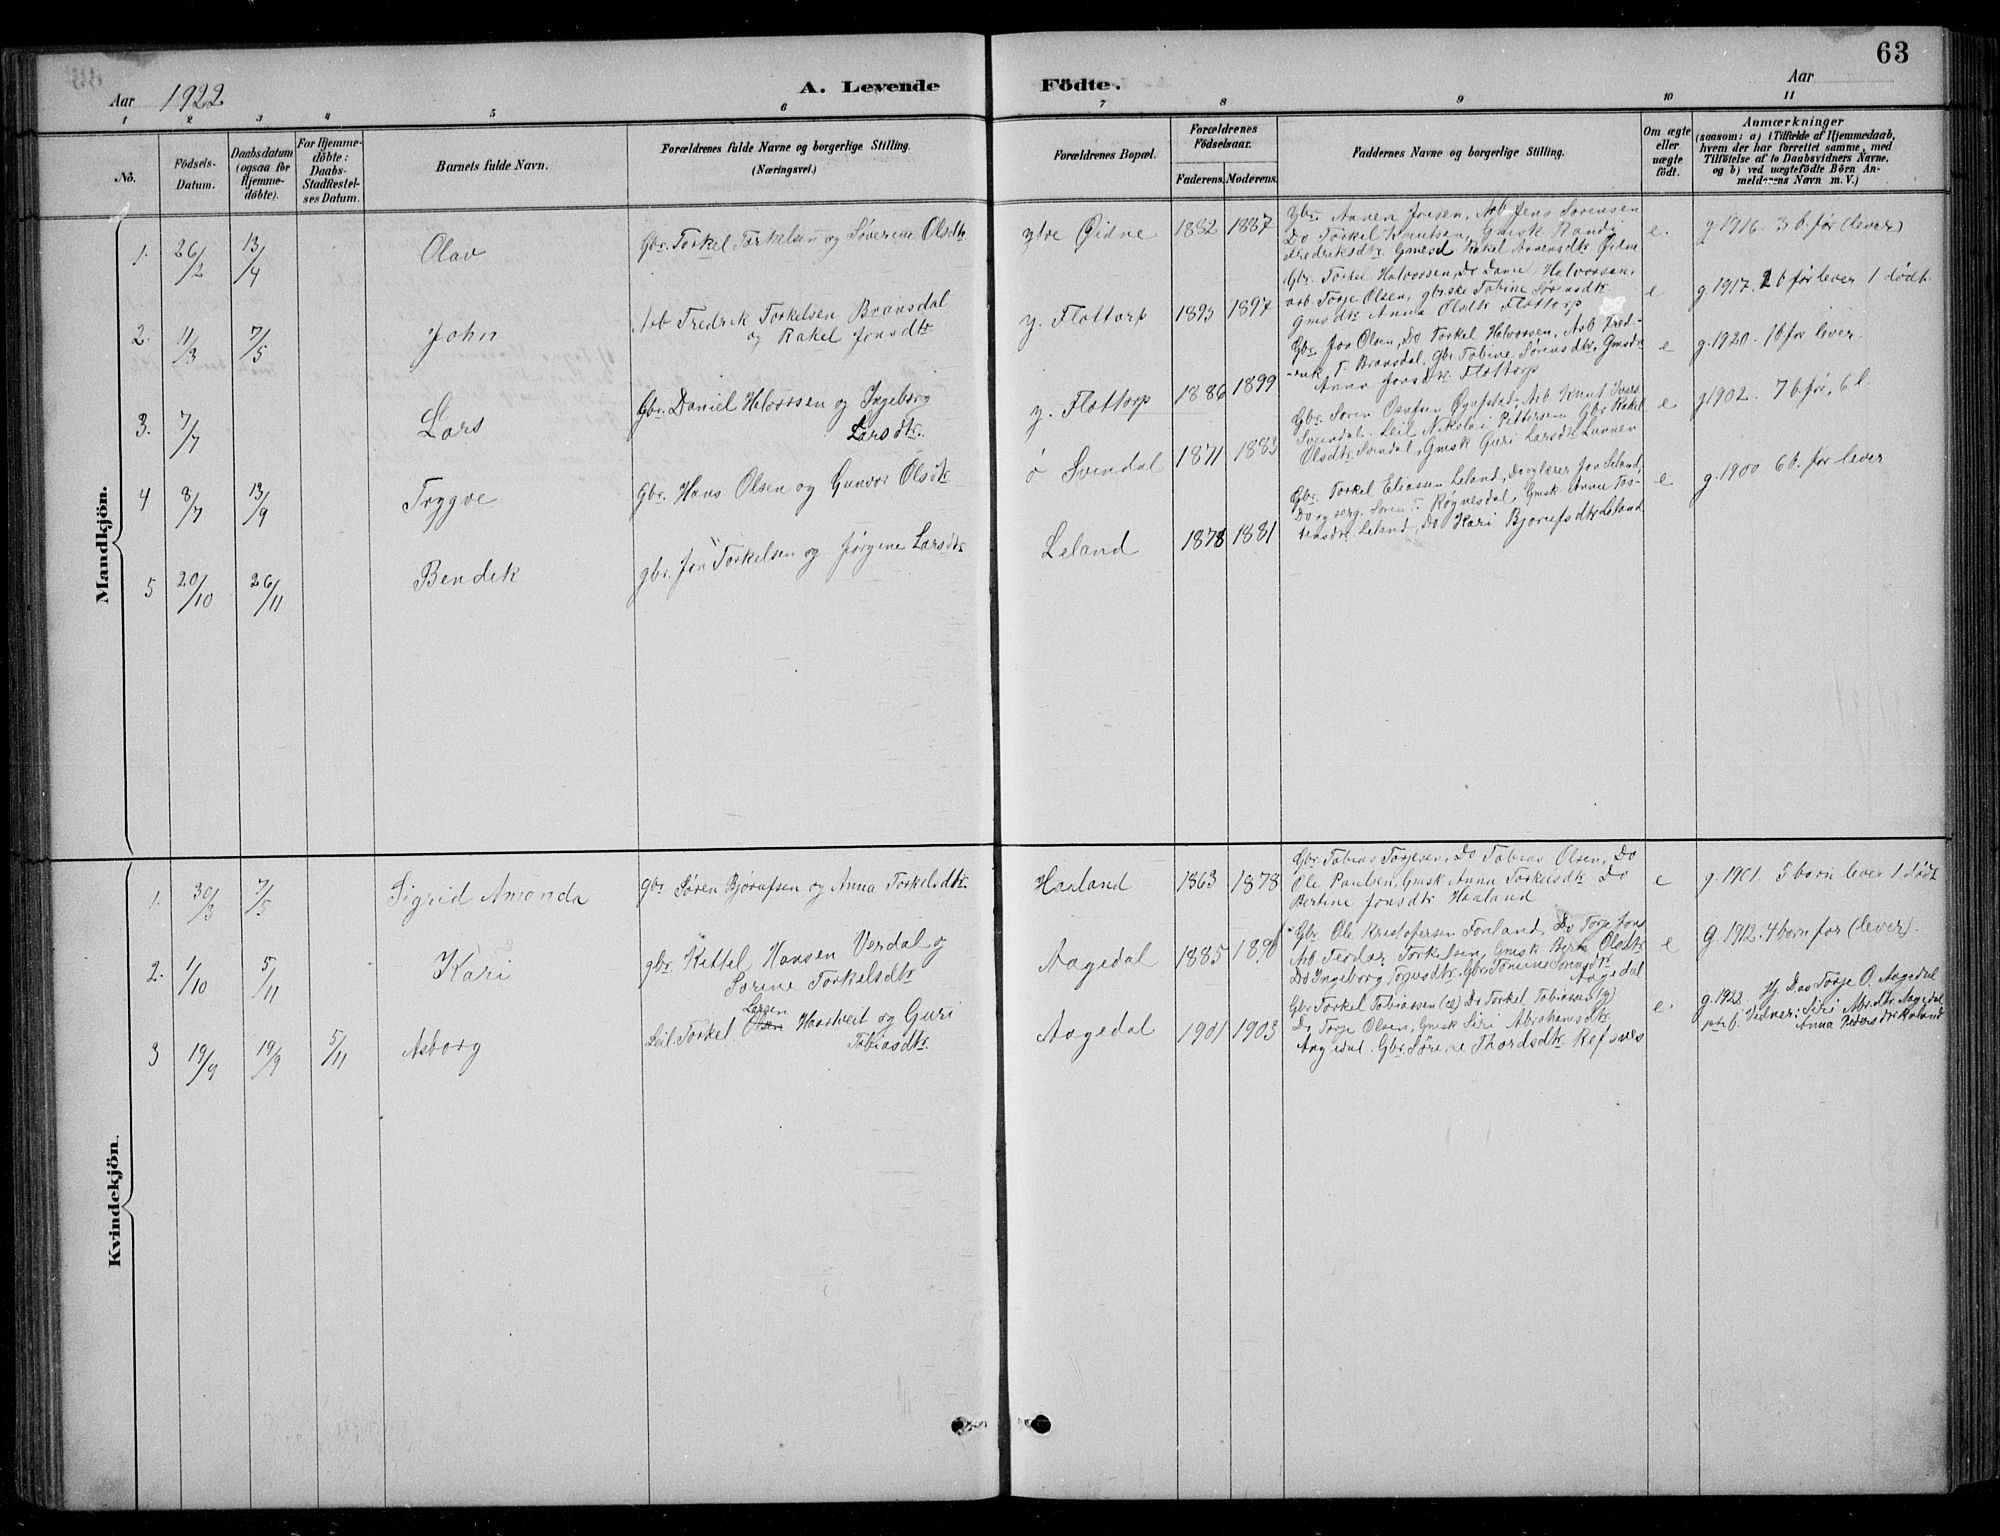 63
Aar 1922
A. Levende Födte.
Aar
1 2 3 4 5 6 7 8 9 10 11
No.
Födsels-
Datum.
Daabsdatum
(ogsaa for
Hjemme-
döbte).
For Hjemme-
döbte:
Daabs-
Stadfæstel-
ses Datum.
Barnets fulde Navn.
Forældrenes fulde Navne og borgerlige Stilling.
(Næringsvei.)
Forældrenes Bopæl.
Forældrenes
Födselsaar.
Faderens. Moderens.
Faddernes Navne og borgerlige Stilling.
Om ægte
eller
uægte
födt.
Anmærkninger
(saasom: a) i Tilfælde af Hjemmedaab,
hvem der har forrettet samme, med
Tilföielse af to Daabsvidners Navne,
og b) ved uægtefödte Börn An-
melderens Navn m. V.)
Mandkjön.
1. 26/2 13/4 Olav
Gbr. Torkel Torkelsen og Severine Olsdtr
ytre Øidne 1882 1887
Gbr. Aanen Jonsen, Arb Jens Sørensen
Do Torkel Knutsen, Gmsk Randi
Fredriksdtr. Gmesd Rakel Aanensdtr Øidne
e. g 1916. 3 b. før (lever)
2. 11/3 7/5 John
Arb Fredrik Torkelsen Bransdal
og Rakel Jonsdtr
y. Flottorp 1893 1897
Gbr. Torkel Halvorsen, Do Daniel Halvorsen,
arb. Torje Olsen, gbrske Tobine Sørensdtr
Gmsdtr Anna Olsdtr Flottorp
e g 1917. 2 b før lever 1 dødt.
3. 7/7 Lars
Gbr. Daniel Halvorsen og Ingeborg
Larsdtr.
y. Flottorp 1886 1899
Gbr Jon Olsen, Do Torkel Halvorsen, Arb Fred-
rik T. Bransdal, gbr Tobine Sørensdtr, Gmsdtr
Anna Jonsdtr Flottorp
e g. 1920. 1 b før lever.
4 8/7 13/9 Tryggve
Gbr. Hans Olsen og Gunvor Olsdtr
ø Svindal 1871 1883
Gbr. Søren Arb Knut
Svendal. Leil Nikolai Pettersen Gbr Rakel
Olsdtr Svindal, Gmsk Guri Larsdtr
e g 1902. 7 b. før, 6 l.
5 20/10 26/11 Bendik
gbr. Jon Torkelsen og Jørgine Larsdtr
Leland 1878 1881
Gbr. Torkel Eliassen Leland, Do og lærer Jon Leland,
Do og serg. Søren T. Røgnesdal, Gmsk Anne Tos-
tensdtr Leland, Do Kari Bjorufsdtr Leland
e g. 1900 6 b. før lever
Kvindekjön.
1. 30/3 7/5 Sigrid Amanda
gbr Søren Bjorufsen og Anna Torkelsdtr.
Haaland 1863 1878
Gbr. Tobias Torjesen, Do Tobias Olsen, Do
Ole Paulsen, Gmsk Anna Torkelsdtr Do
Bertine Jonsdtr Haaland
e g. 1901. 5 born lever 1 dødt
2. 1/10 5/11 Kari
gbr. Kittel Hansen Verdal og
Sørine Torkelsdtr
Aagedal 1885 1890
Gbr Ole Kristofersen Forland, Do Torje Jons.
Arb. Teodor Torkelsen, Gmsk Berte Olsdtr
Do Ingeborg Torjusdtr, Gbr Tomine Jonsdtr
Aagedal
e g. 1912. 4 born før (lever).
3 19/9 19/9 5/11 Asborg
Larsen
Leil. Torkel Olsen Haartveit og Guri
Tobiasdtr.
Aagedal 1901 1903
Gbr Torkel Tobiassen (æ) Do Torkel Tobiassen (y)
Do Torje Olsen, Gmsk Siri Abrahamsdtr
Aagedal. Gbr Sørine Thordsdtr Refsnes
e g. 1922. Hj Daa Torje O. Aagedal
1ste b. Vidner: Siri Abr.dtr Aagedal
Anna Pedersdtr Roland